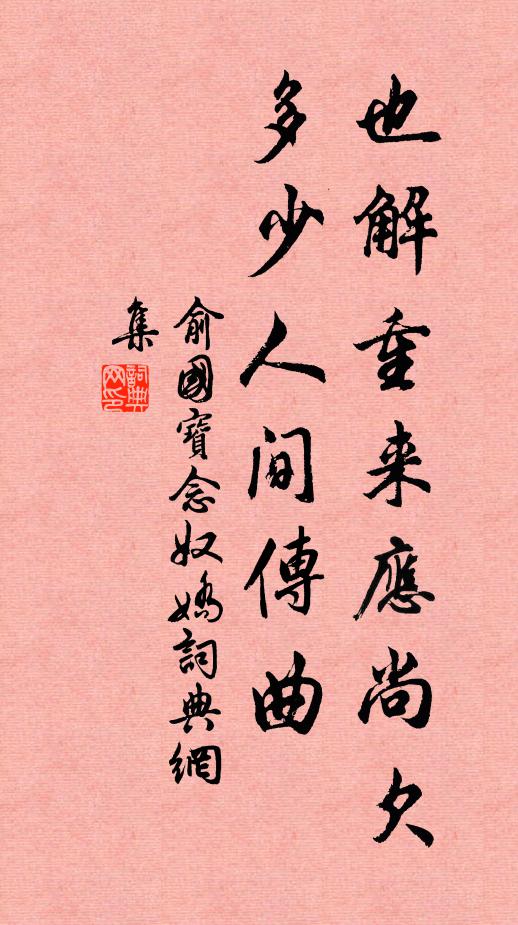 也解重来應尚欠
多少人间傳曲
俞國寶念奴嬌詞典網
集
詞典
网印